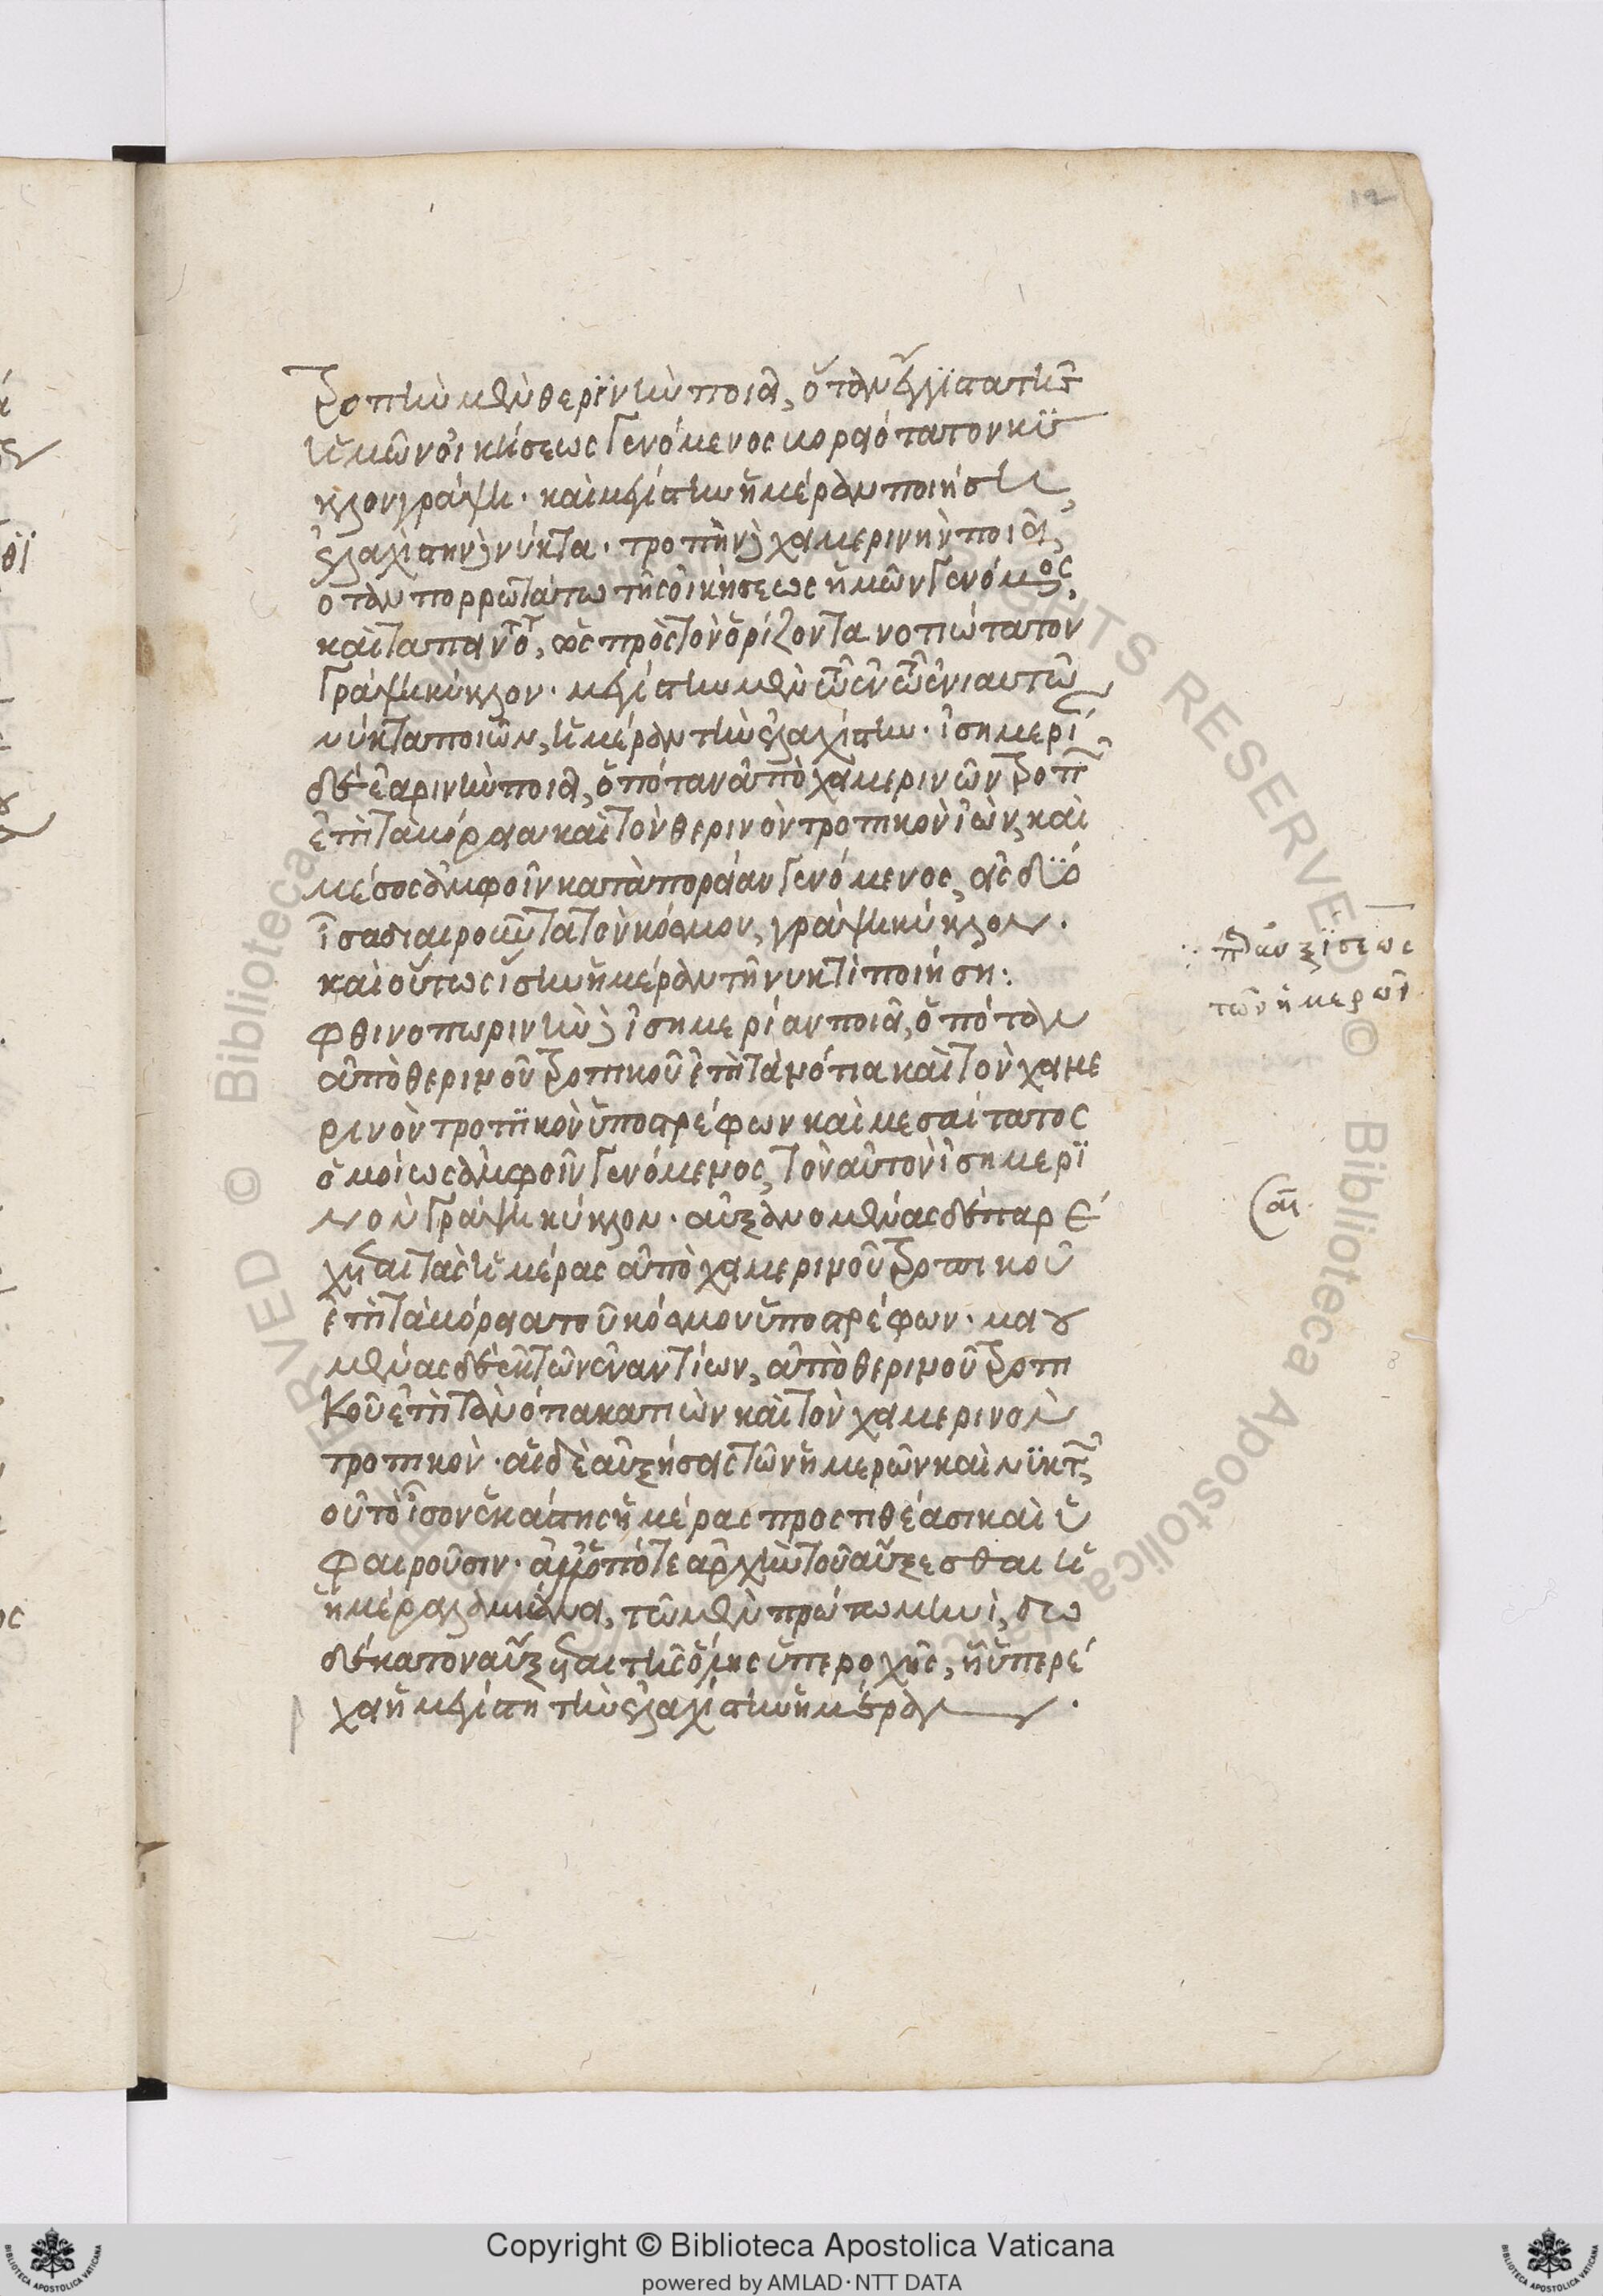 12
τροπὴν μὲν θερϊνὴν ποιεῖ, ὅταν ἔγγιστα τῆς
ἡμῶν οἰκήσεως γενόμενος βορειότατον κύ
κλον γράψη. καὶ μεγίστην ἡμέραν ποιήση,
ἐλαχίστην δὲ νύκτα. τροπὴν δὲ χειμερινὴν ποιεῖ,
ὅταν πορρωτάτω τῆς οἰκήσεως ἡμῶν γενόμος,
καὶ ταπεινοτ, ὡς πρὸς τὸν ὁρίζοντα νοτιώτατον
γράψη κύκλον. μεγίστην μὲν τῶν ἐν τῶ ἐνιαυτῶ
νύκτα ποιῶν, ἡμέραν τὴν ἐλαχίστην. ἰσημερί
δὲ ἐαρινὴν ποιεῖ, ὁπόταν ἀπὸ χειμερινῶν τροπ
ἐπὶ τὰ βόρεια καὶ τὸν θερινὸν τροπικὸν ἰὼν, καὶ
μέσος ἀμφοῖν κατὰ πορείαν γενόμενος, εἰς δύο
ἴσα διαιροῦντα τὸν κόσμον, γράψη κύκλον.
καὶ οὕτως ἴσην ἡμέραν τῆ νυκτὶ ποιήση:
φθινοπωρινὴν δὲ ἰσημερίαν ποιεῖ, ὁπόταν
ἀπὸ θερινοῦ τροπικοῦ ἐπὶ τὰ νότια καὶ τὸν χειμε
ρινὸν τροπικὸν ὑποστρέφων καὶ μεσαίτατος
ὁμοίως ἀμφοῖν γενόμενος, τὸν αὐτὸν ἰσημερϊ
νὸν γράψη κύκλον. αὐξανομένας δὲ παρέ
χεται τὰς ἡμέρας ἀπὸ χειμερινοῦ τροπικοῦ
ἐπὶ τὰ βόρεια τοῦ κόσμου ὑποστρέφων. μειου
μένας δὲ ἐκ τῶν ἐναντίων, ἀπὸ θερινοῦ τροπι
κοῦ ἐπὶ τὰ νότια κατιὼν καὶ τὸν χειμερινὸν
τροπικόν. αἱ δὲ αὐξήσεις τῶν ἡμερῶν καὶ νυκτ
οὐ τὸ ἴσον ἑκάστης ἡμέρας προστιθέασι καὶ ὑ
φαιροῦσιν. ἀλλ' ὁπότε ἀρχὴν τοῦ αὔξεσθαι ἡ
ἡμέρα λαμβάνει, τῶ μὲν πρώτω μηνὶ, δω
δέκατον αὔξεται τῆς ὅλης ὑπεροχῆς, ἧ ὑπερέ
χει ἡ μεγίστη τὴν ἐλαχίστην ἡμέραν.
π αὐξϊσεως
τῶν ἡμερῶν
Copyright © Biblioteca Apostolica Vaticana
powered by AMLAD·NTT DATA